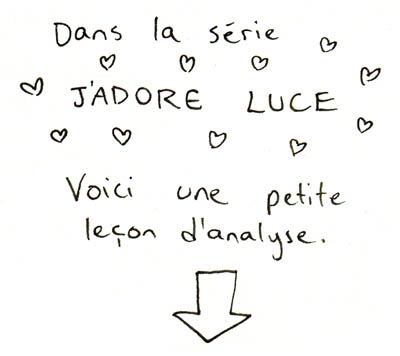 Dans la série
J'ADORE LUCE
Voici une petite
leçon d'analyse.